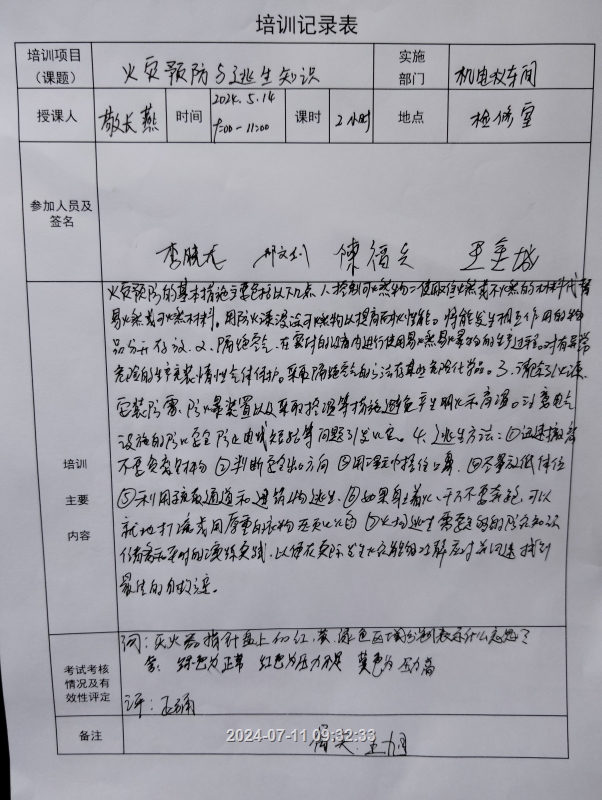 培训记录表
培训项目（课题） 火灾预防与逃生知识 实施部门 机电队车间
授课人 敬长燕 时间 2024.5.14 9:00-11:00 课时 2小时 地点 检修室
参加人员及签名
李晓龙 陈福兴
培训主要内容
火灾预防的基本措施主要包括以下几点 1、控制可燃物：使用难燃或不燃的材料代替
易燃或可燃材料。用防火漆浸涂可燃物以提高耐火性能。将能发生相互作用的物
品分开存放、2、隔绝空气 在密封的设备内进行使用易燃易爆物的生产过程。对有异常
危险的生产充装惰性气体保护。采取隔绝空气的方法存某些危险化学品。3、清除引火源
安装防雷、防爆装置以及采取控温等措施避免产生明火和高温。
设施的防止电线短路等问题引发火灾。4、逃生方法：①迅速撤离
不要贪恋财物 ②判断逃出方向 ③用湿毛巾捂住口鼻 ④尽量放低体位
⑤利用疏散通道和建筑物逃生 ⑥如果身上着火、千万不要奔跑，可以
就地打滚或用厚重的衣物压灭火焰 ⑦火场逃生需要的防火知识
和平时的演练实践，以便在实际发生火灾能够冷静应对并迅速找到
最佳的自救之道。
考试考核情况及有效性评定
问：灭火器指针盘上的红、黄、绿色区域分别表示什么意思？
答：绿色为正常 红色为压力不足 黄色为压力高
评：正确
备注
2024-07-11 09:32:33